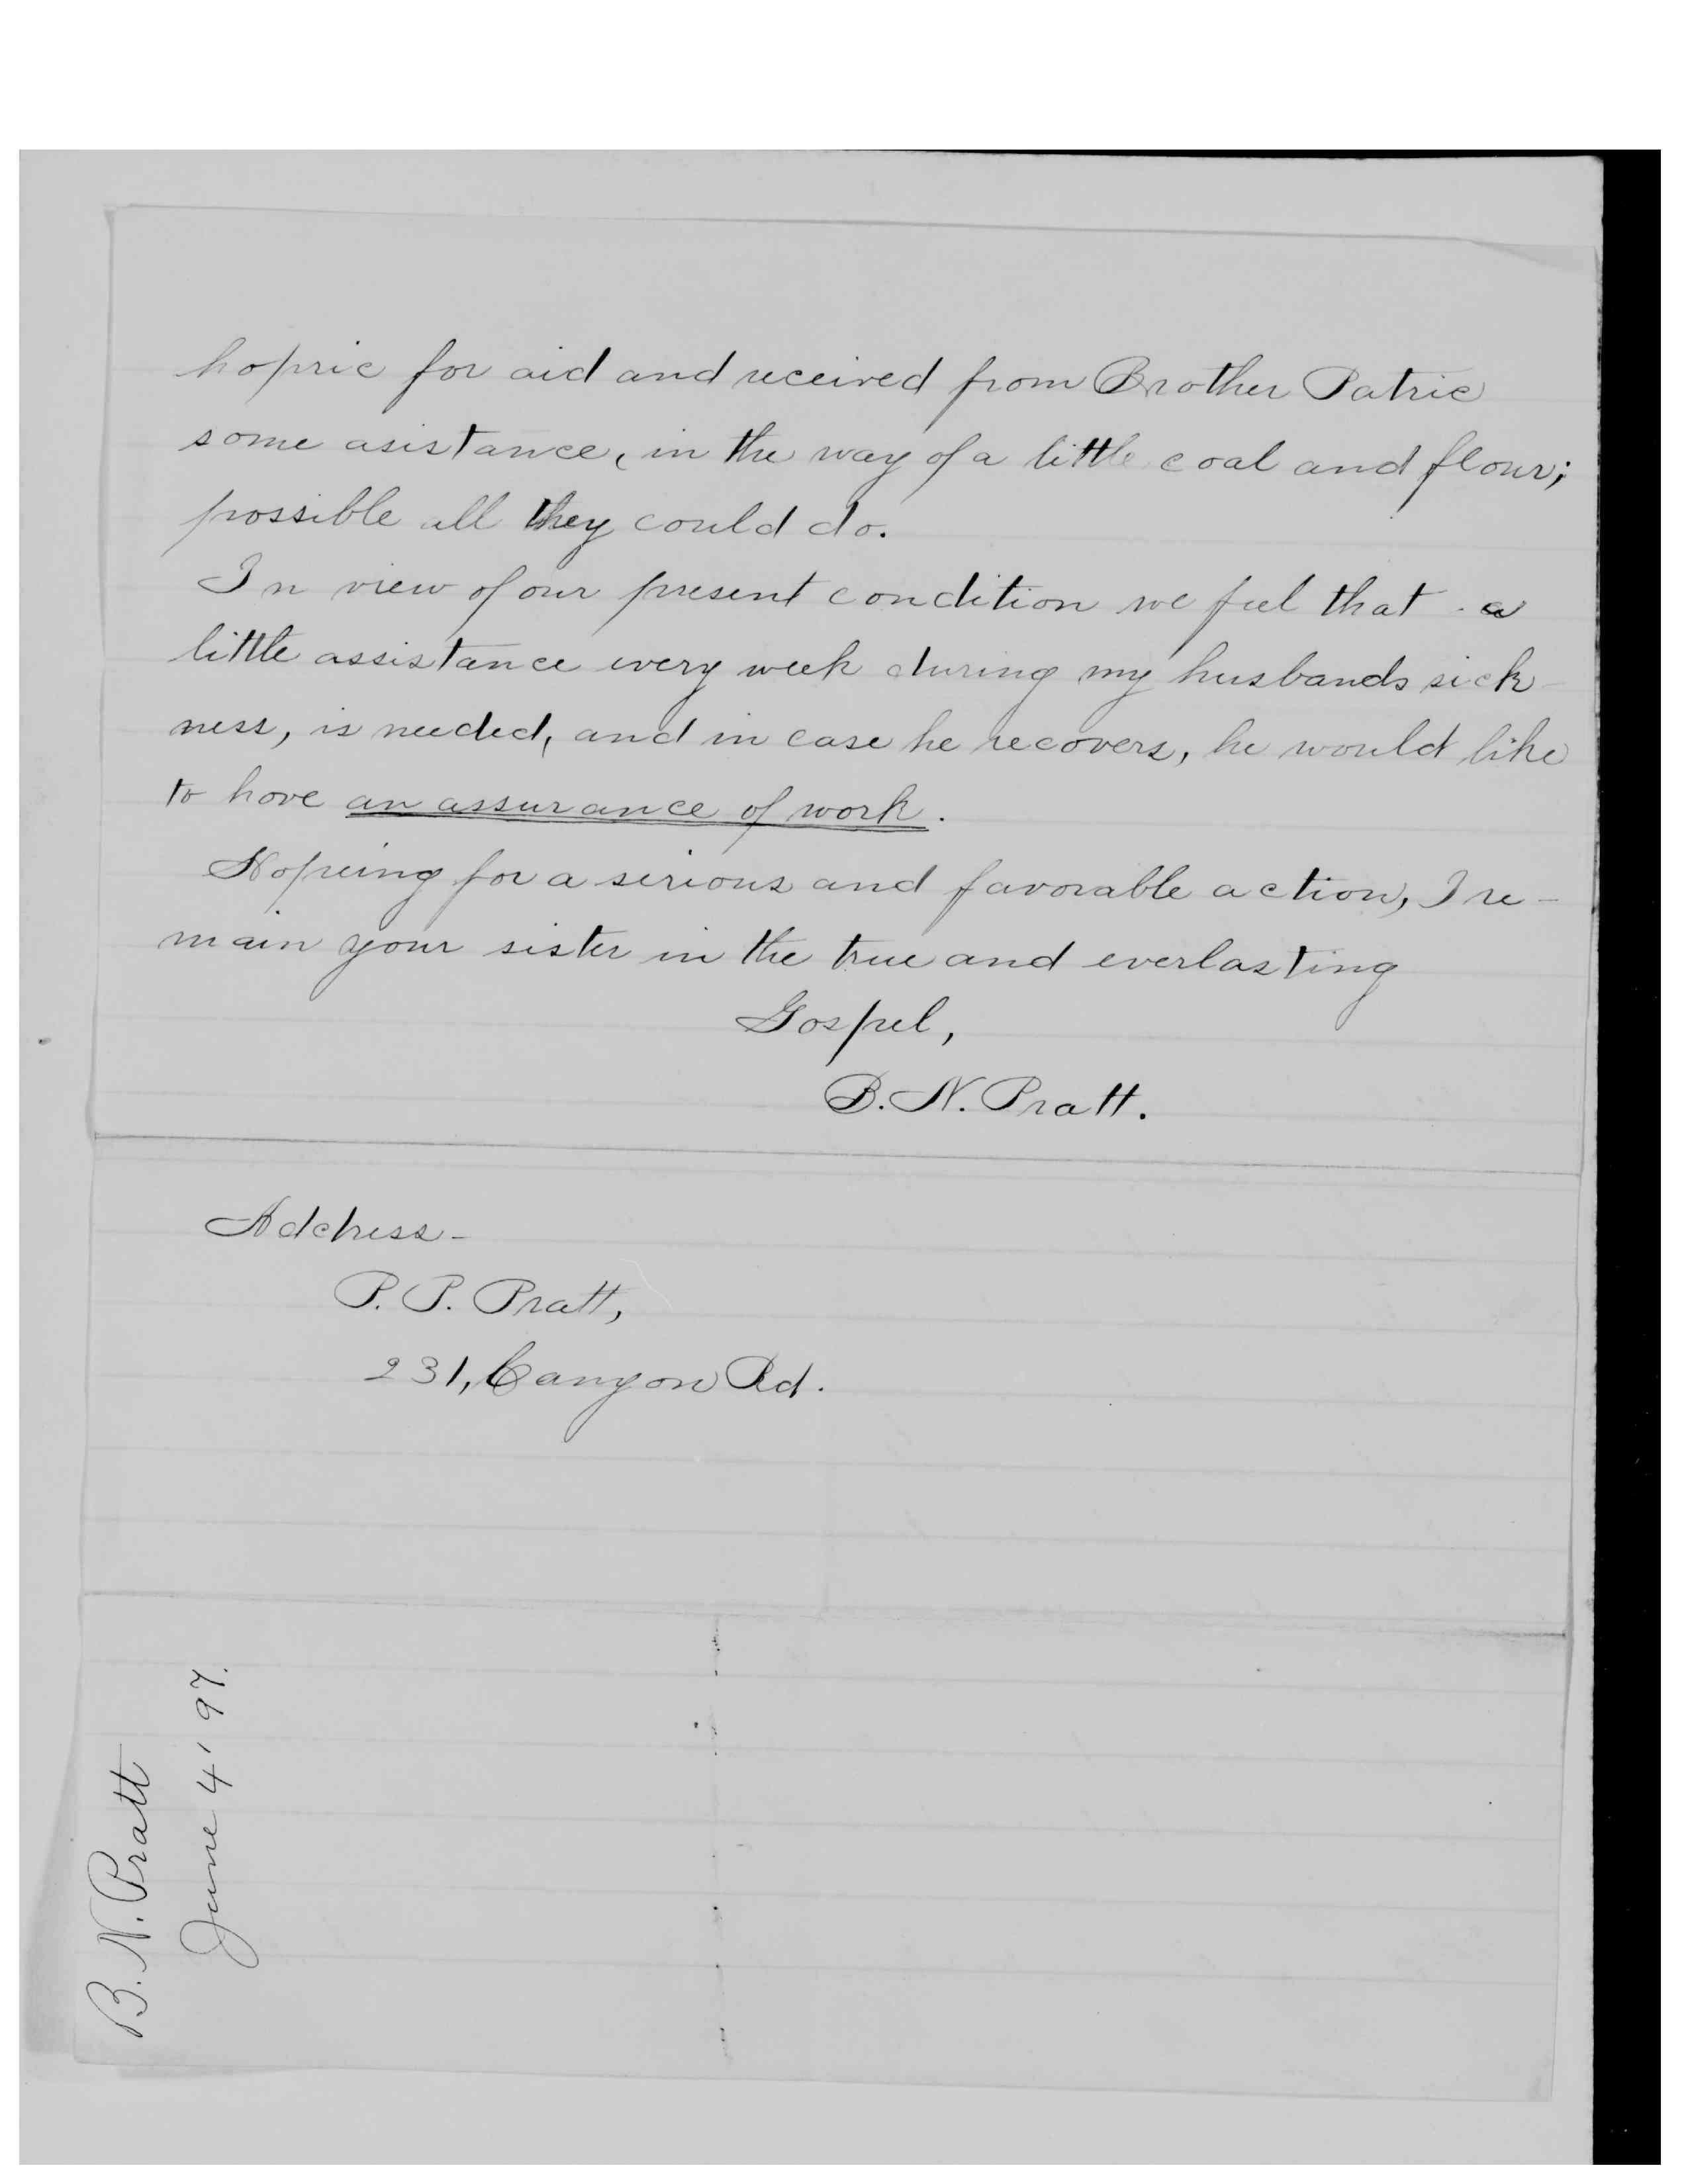 hopric for aid and received from Brother Patric
some asistance, in the way of a little coal and flour;
possible all they could do.
In view of our present condition we feel that a
little assistance every week during my husbands sick-
ness, is needed, and in case he recovers, he would like
to have an assurance of work.
Hopeing for a serious and favorable action, I re-
main your sister in the true and everlasting
Gospel,
B. N. Pratt.
Address-
P. P. Pratt,
231, Canyon Rd.
B. N. Pratt
June 4' 97.